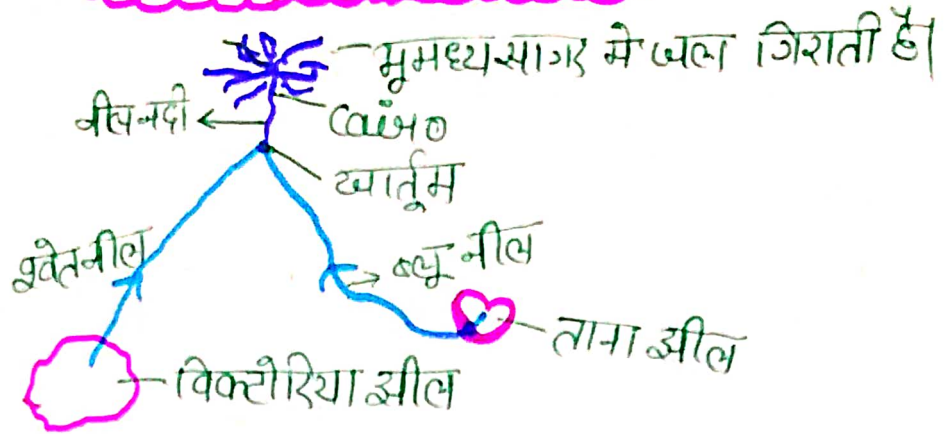 भूमध्यसागर मे जल गिराती है।
नील नदी
Cairo
खार्तूम
श्वेतनील
ब्लू नील
ताना झील
विक्टोरिया झील